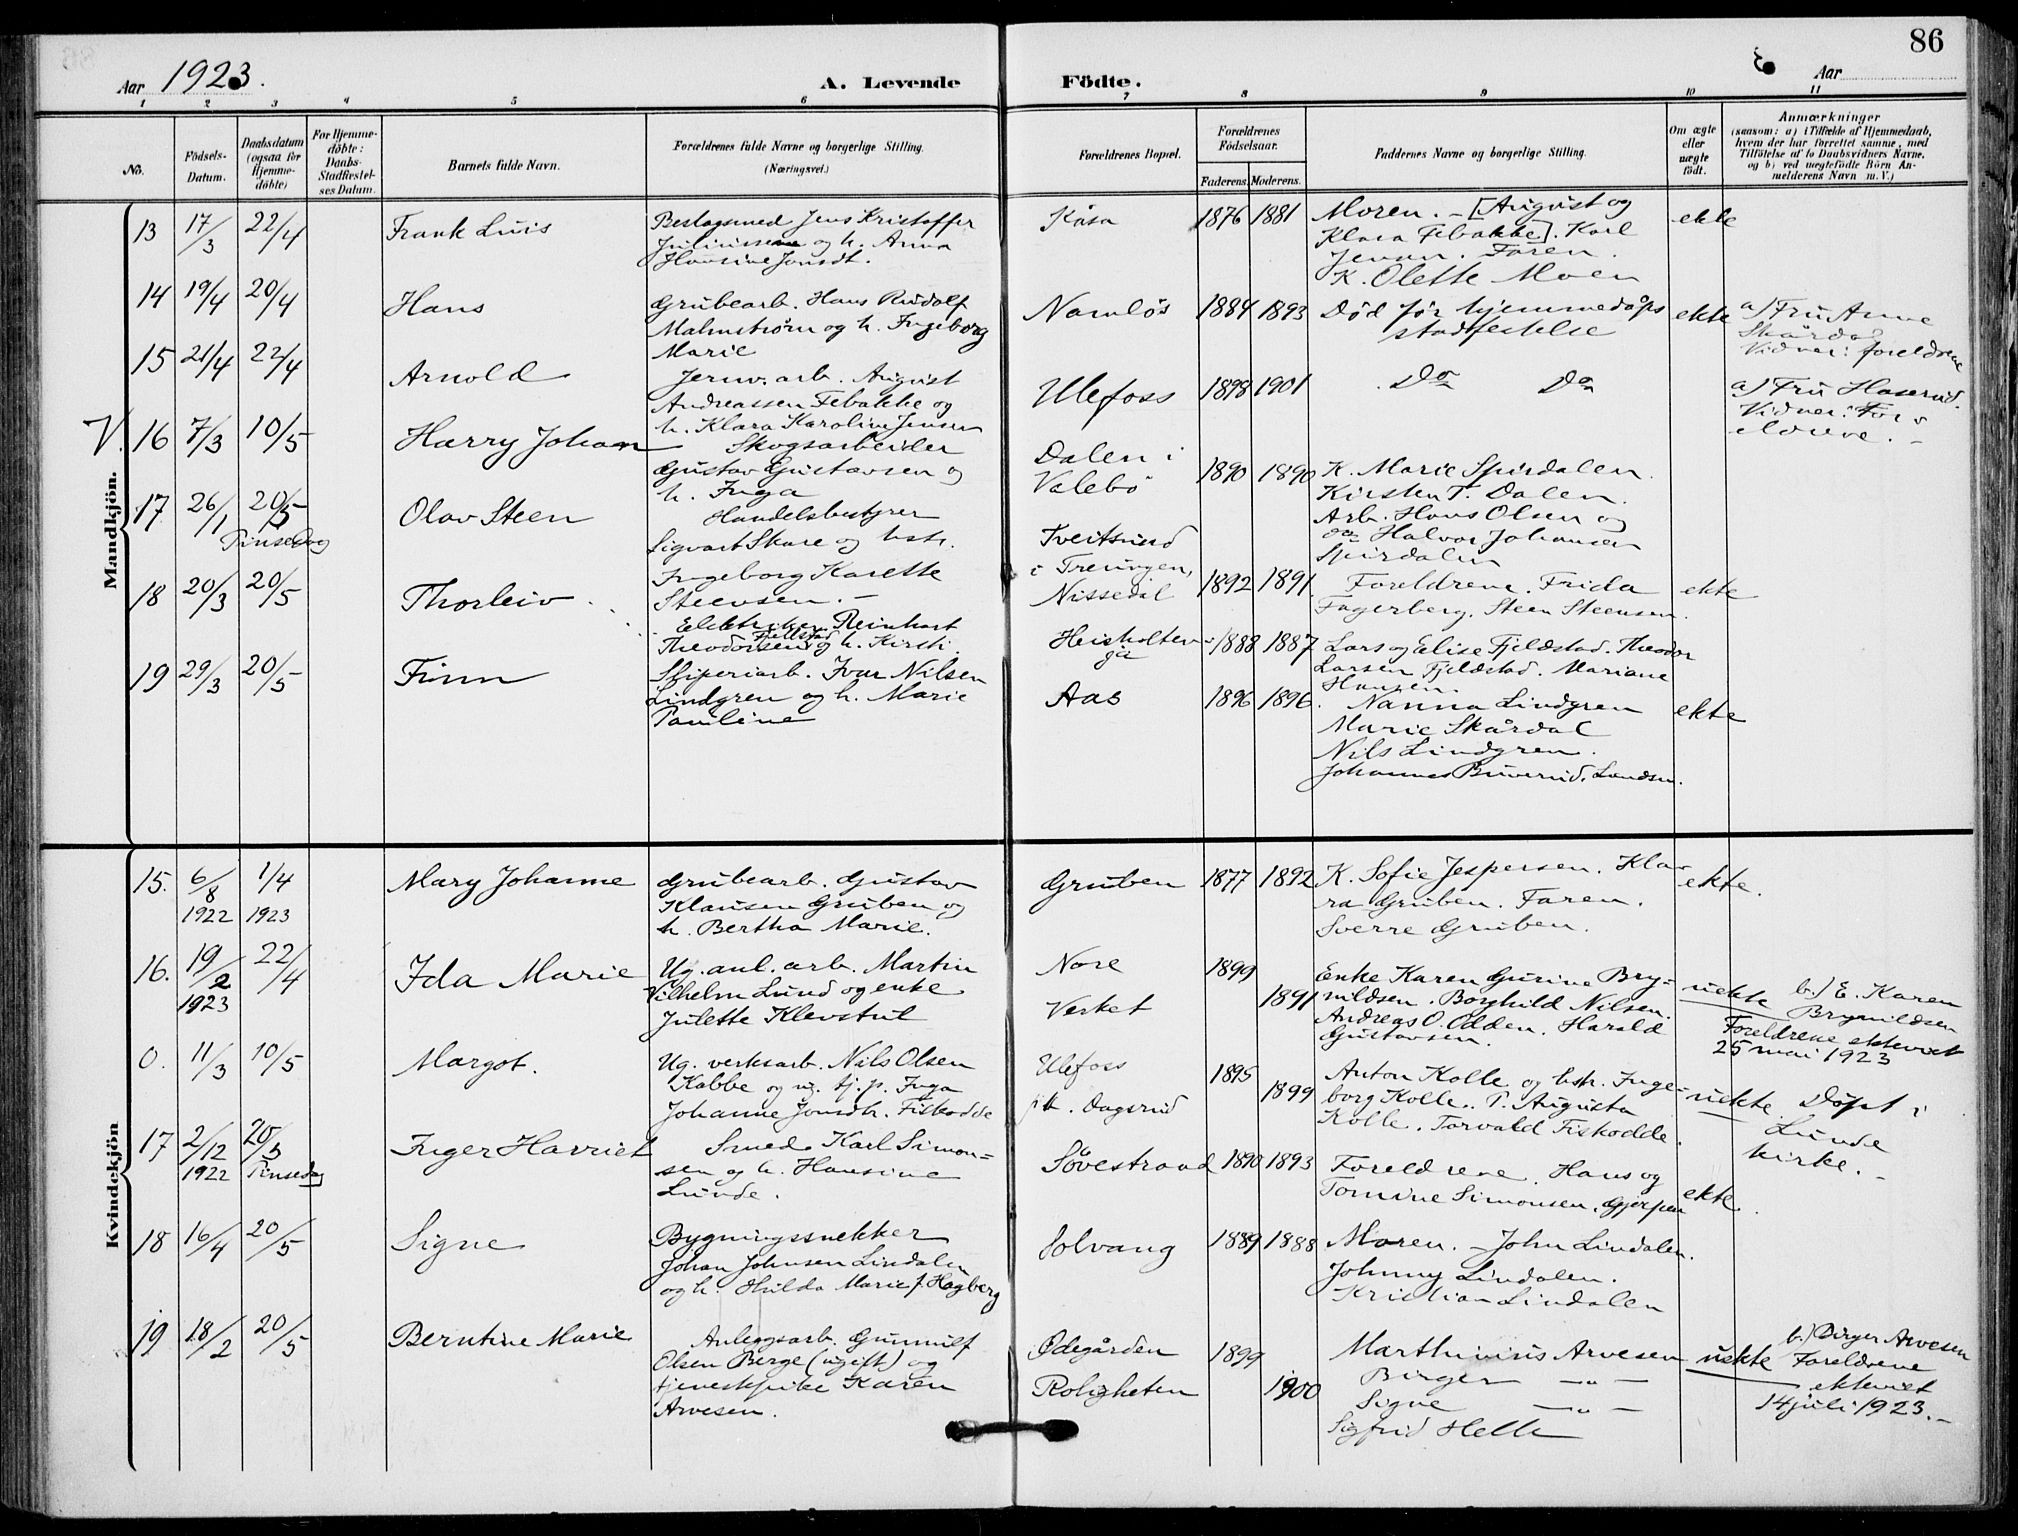 86
Aar 1923.
A. Levende Födte.
Aar
1 2 3 4 5 6 7 8 9 10 11
No.
Födsels-
Datum.
Daabsdatum
(ogsaa for
Hjemme-
døbte)
For Hjemme-
døbte:
Daabs-
Stadfæstel-
ses Datum.
Barnets fulde Navn.
Forældrenes fulde Navne og borgerlige Stilling.
(Næringsvei.)
Forældrenes Bopæl.
Forældrenes
Födselsaar.
Faderens. Moderens.
Faddernes Navne og borgerlige Stilling.
Om ægte
eller
uægte
født.
Anmærkninger
(saasom: a) i Tilfælde af Hjemmedaab,
hvem der har forrettet samme, med
Tilföielse af to Daabsvidners Navne,
og b) ved uægtefödte Börn An-
melderens Navn m. V.)
Mandkjön.
13 17/3 22/4 Frank Luis
Beslagsmed Jens Kristoffer
Juliussen og h. Anna
Hansine Jonsdt.
Kåsa 1876 1881
Moren. - [August og
Klara Febakke]. Karl
Jensen. Faren.
K. Olette Moen
ekte
14 19/4 20/4 Hans
Grubearb. Hans Rudolf
Malmstrøm og h. Ingeborg
Marie
Namløs 1884 1893
Død før hjemmedåps
stadfestelse
ekte
a) Fru Anne
Skårdal
Vidner: foreldrene
15 21/4 22/4 Arnold
Jernv. arb. August
Andreassen Febakke og
h. Klara Karoline Jensen
Ulefoss 1898 1901
Do Do
a) Fru Haserud.
Vidner: For
eldrene. -
V. 16 7/3 10/5 Harry Johan
Skogsarbeider
Gustav Gustavsen og
h. Inga
Dalen i
Valebö 1890 1890
K. Marie Spirdalen.
Kirsten T. Dalen.
Arb. Hans Olsen og
do Halvor Johansen
Spirdalen
17 26/1 20/5 Olav Steen
Pinsedag
Handelsbestyrer
Sigvart Skare og hstr.
Ingeborg Karette
Steensen. -
Tveitsund
i Treungen,
Nissedal 1892 1891
Foreldrene. Frida
Fagerberg. Steen Steensen.
ekte
18 20/3 20/5 Thorleiv
Elektriker Reinhart
Theodorsen Fjellstad og h. Kirsti
Heisholten
1888 1887
Lars og Elise Fjeldstad. Theodor
Larsen Fjeldstad. Mariane
Hansen.
19 29/3 20/5 Finn
Sliperiarb. Ivar Nilsen
Lindgren og h. Marie
Pauline
Aas 1896 1896.
Nanna Lindgren
Marie Skårdal
Nils Lindgren.
Johannes Buverud. Landsm.
ekte
Kvindekjön
15. 6/8 1/4 Mary Johanne
1922 1923
Grubearb. Gustav
Klausen Gruben og
h. Bertha Marie.
Gruben 1877 1892
K. Sofie Jespersen. Kla-
ra Gruben. Faren.
Sverre Gruben.
ekte.
16. 19/2 22/4 Ida Marie
1923
Ug. anl. arb. Martin
Vilhelm Lund og enke
Julette Klevstul
Nore 1899
Verket 1891
Enke Karen Gurine Bry-
nildsen. Borghild Nilsen.
Andreas O. Odden. Harald
Gustavsen.
uekte
b.) E. Karen
Brynildsen
Foreldrene ekteviet
25 mai 1923
0. 11/3 10/5 Margot.
Ug. verksarb. Nils Olsen
Kabbe og ug. tj. p. Inga
Johanne Jonsdtr. Fiskodde
Ulefoss 1895
Dagsrud 1899
Anton Kolle og hstr. Inge-
borg Kolle. P. Augusta
Kolle. Torvald Fiskodde.
uekte.
Döpt i
Lunde
kirke. -
17 2/12 20/5 Inger Harriet
1922 Pinsedag
Smed Karl Simon-
sen og h. Hansine
Lunde.
Søvestrand 1890 1893
Foreldrene. Hans og
Tomine Simonsen, Gjerpen
ekte.
18 16/4 20/5 Signe
Bygningssnekker
Johan Johnsen Lindalen
og h. Hilda Marie f. Hagberg
Solvang 1889 1888
Moren. - John Lindalen.
Johnny Lindalen.
Kristian Lindalen
19 18/2 20/5 Berntine Marie
Anleggsarb. Gunnulf
Olsen Berge (ugift) og
tjenestepike Karen
Arvesen.
Ødegården 1899
Roligheten 1900
Marthinius Arvesen
Birger -"-
Signe -"-
Sigfrid Helle
uekte
b.) Birger Arvesen
Foreldrene
ekteviet
14 juli 1923. -